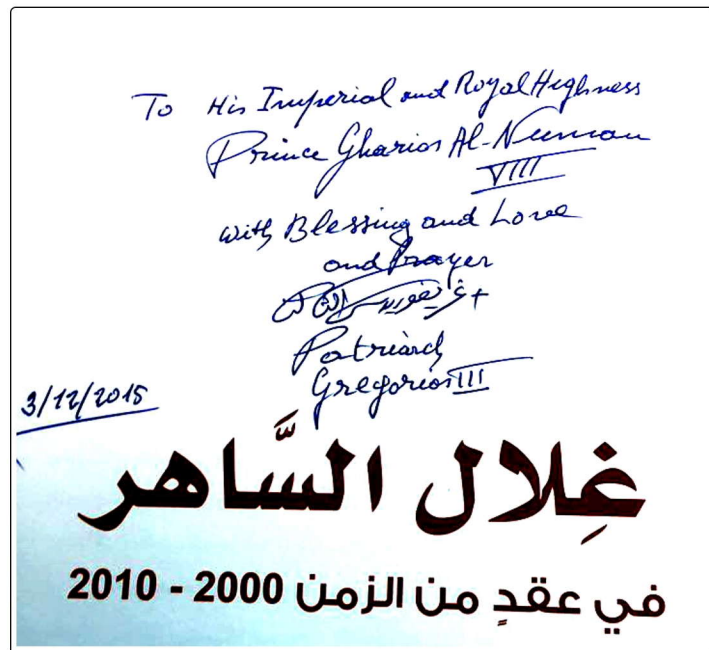 To His Imperial and Royal Highness
Prince Gharios Al-Numan
VIII
with Blessing and Love
and Prayer
+ غريغوريوس الثالث
Patriarch
Gregorios III
3/12/2015
غِلال السَّاهر
في عقدٍ من الزمن 2000 - 2010